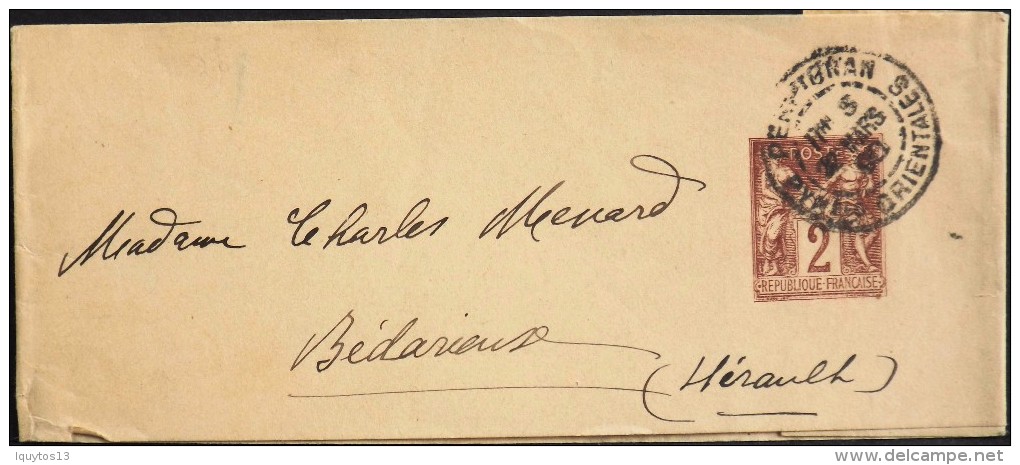 PERPIGNAN
PYRÉNÉES ORIENTALES
MARS
POSTES
2
REPUBLIQUE FRANÇAISE
Madame Charles Menard
Bédarieux
(Hérault)
Iquytos13
delcampe.net